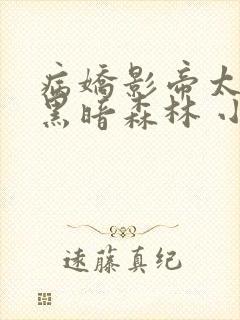 病嬌影帝太
黑暗森林 小
遠藤真纪